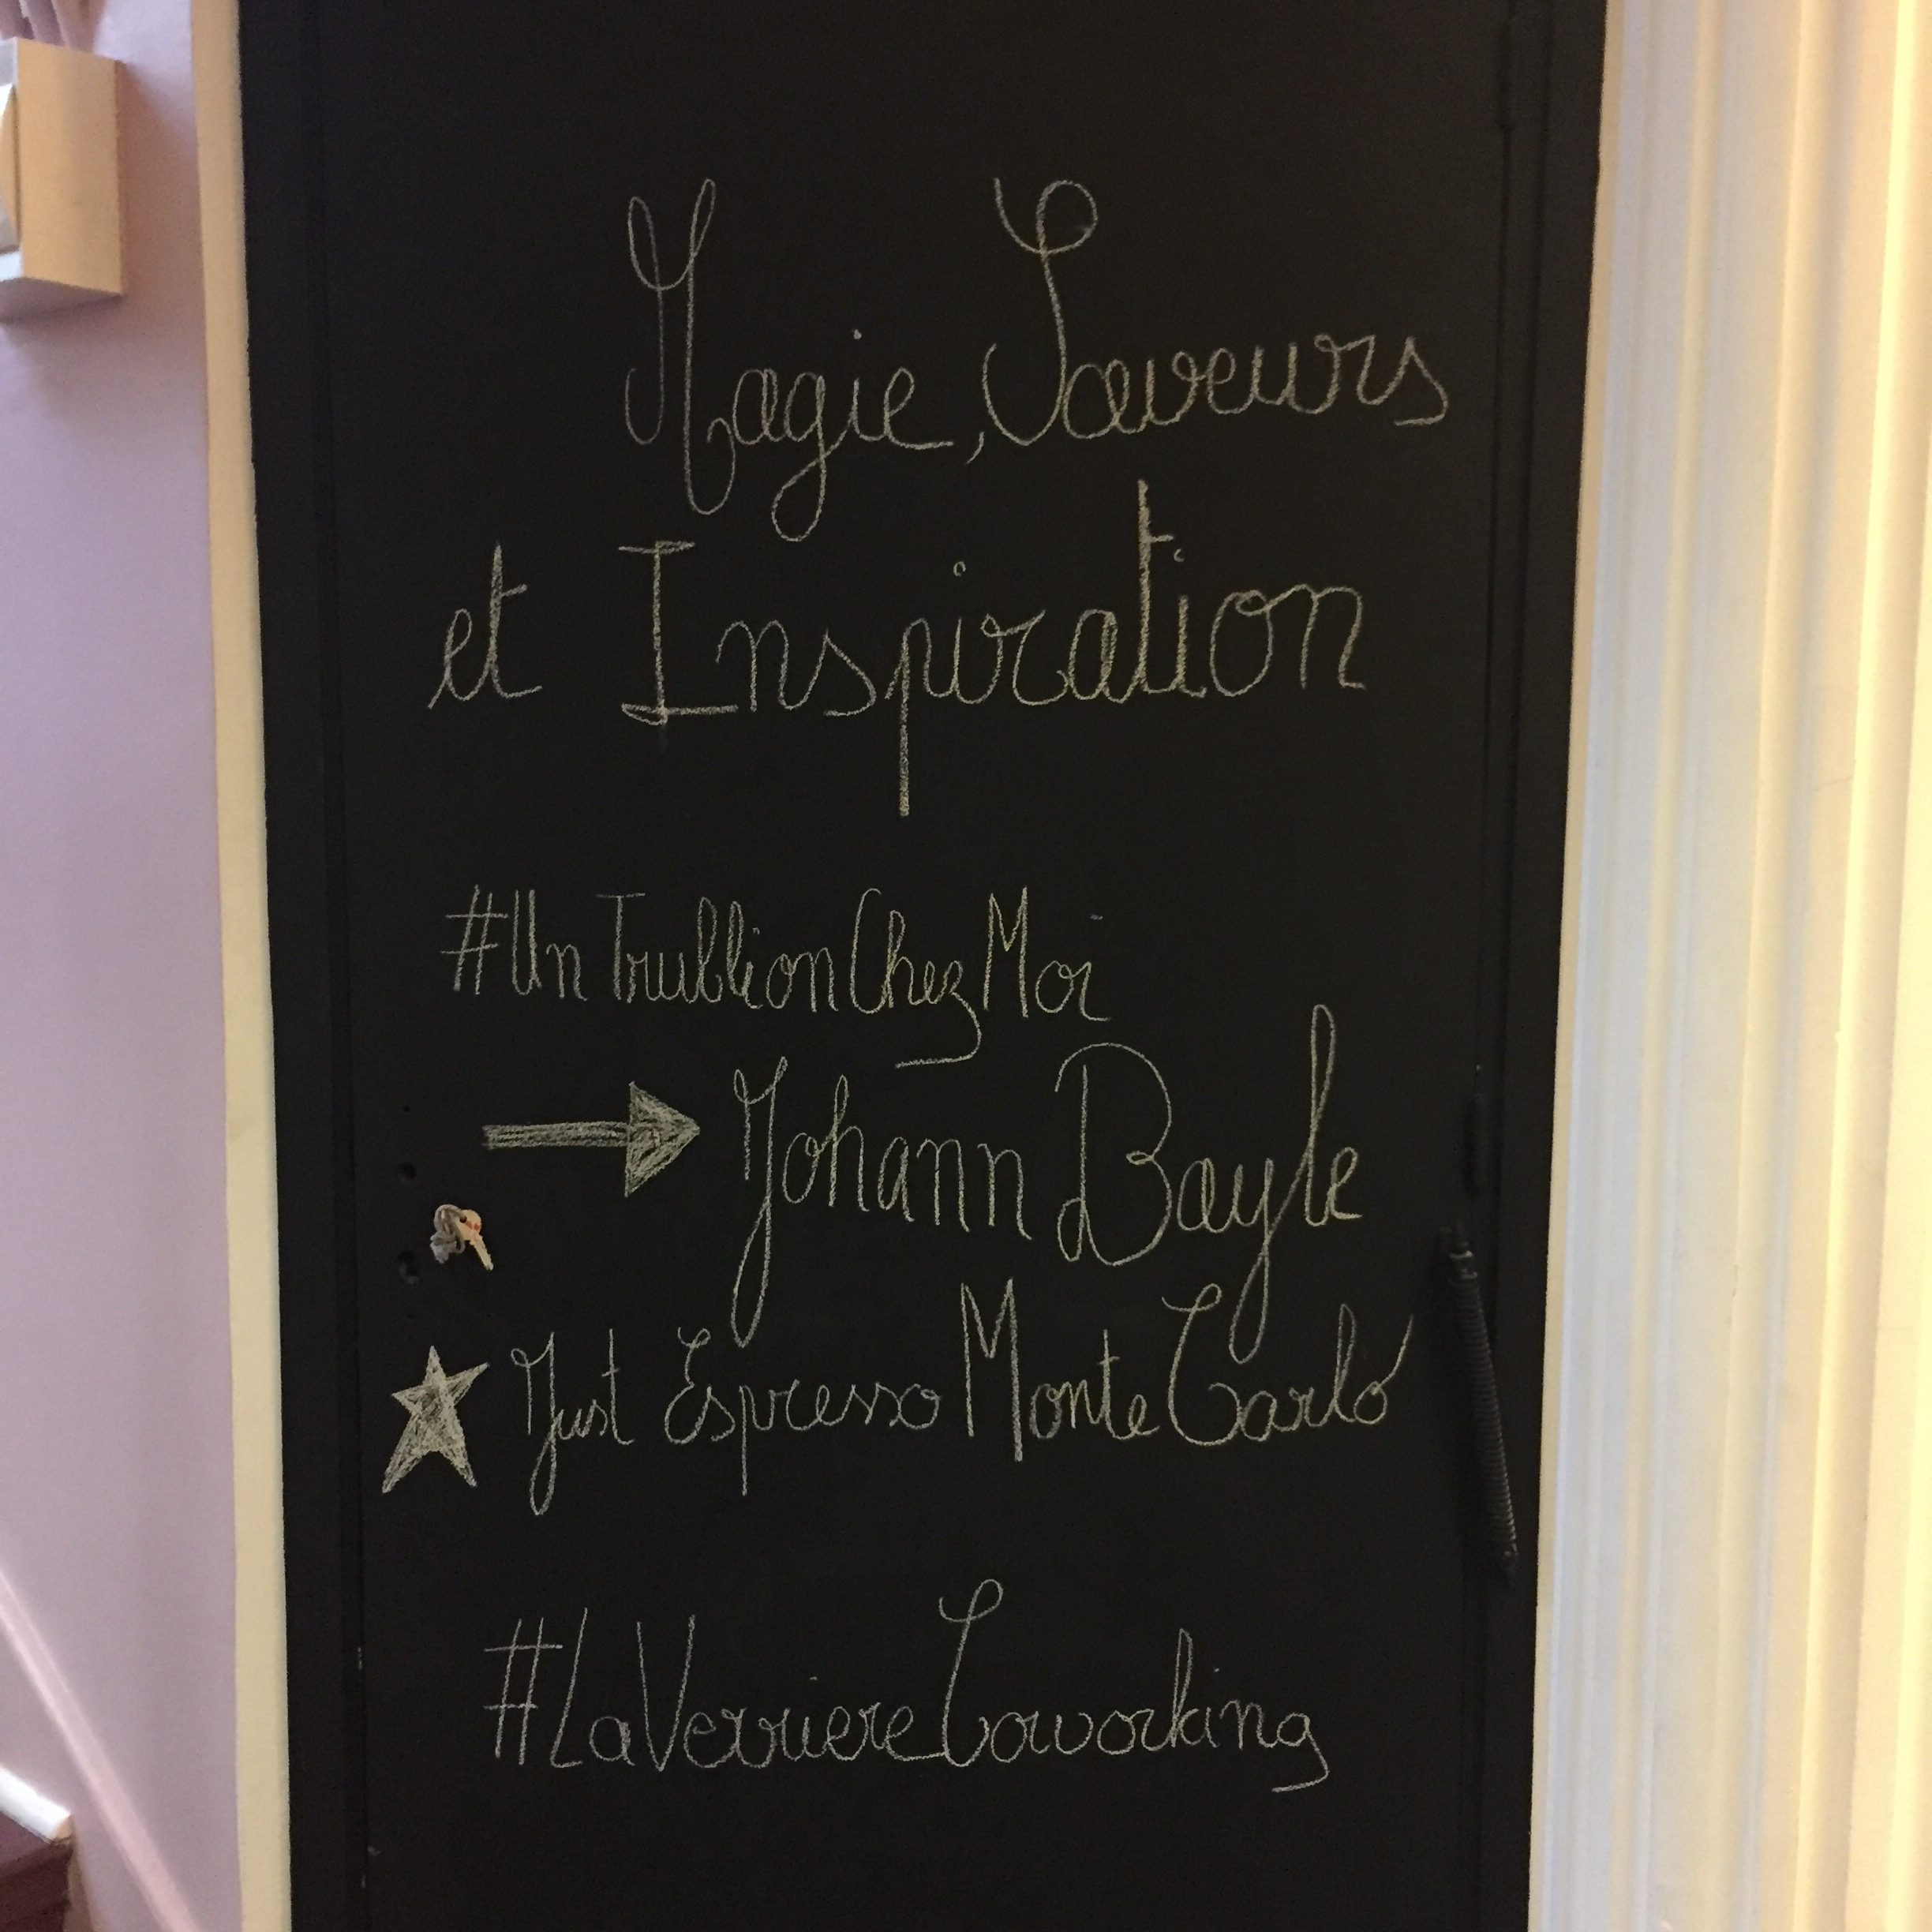 Magie, Saveurs
et Inspiration
#UnTrublionChezMoi
Johann Bayle
Just Espresso Monte Carló
#LaVerriereCoworking